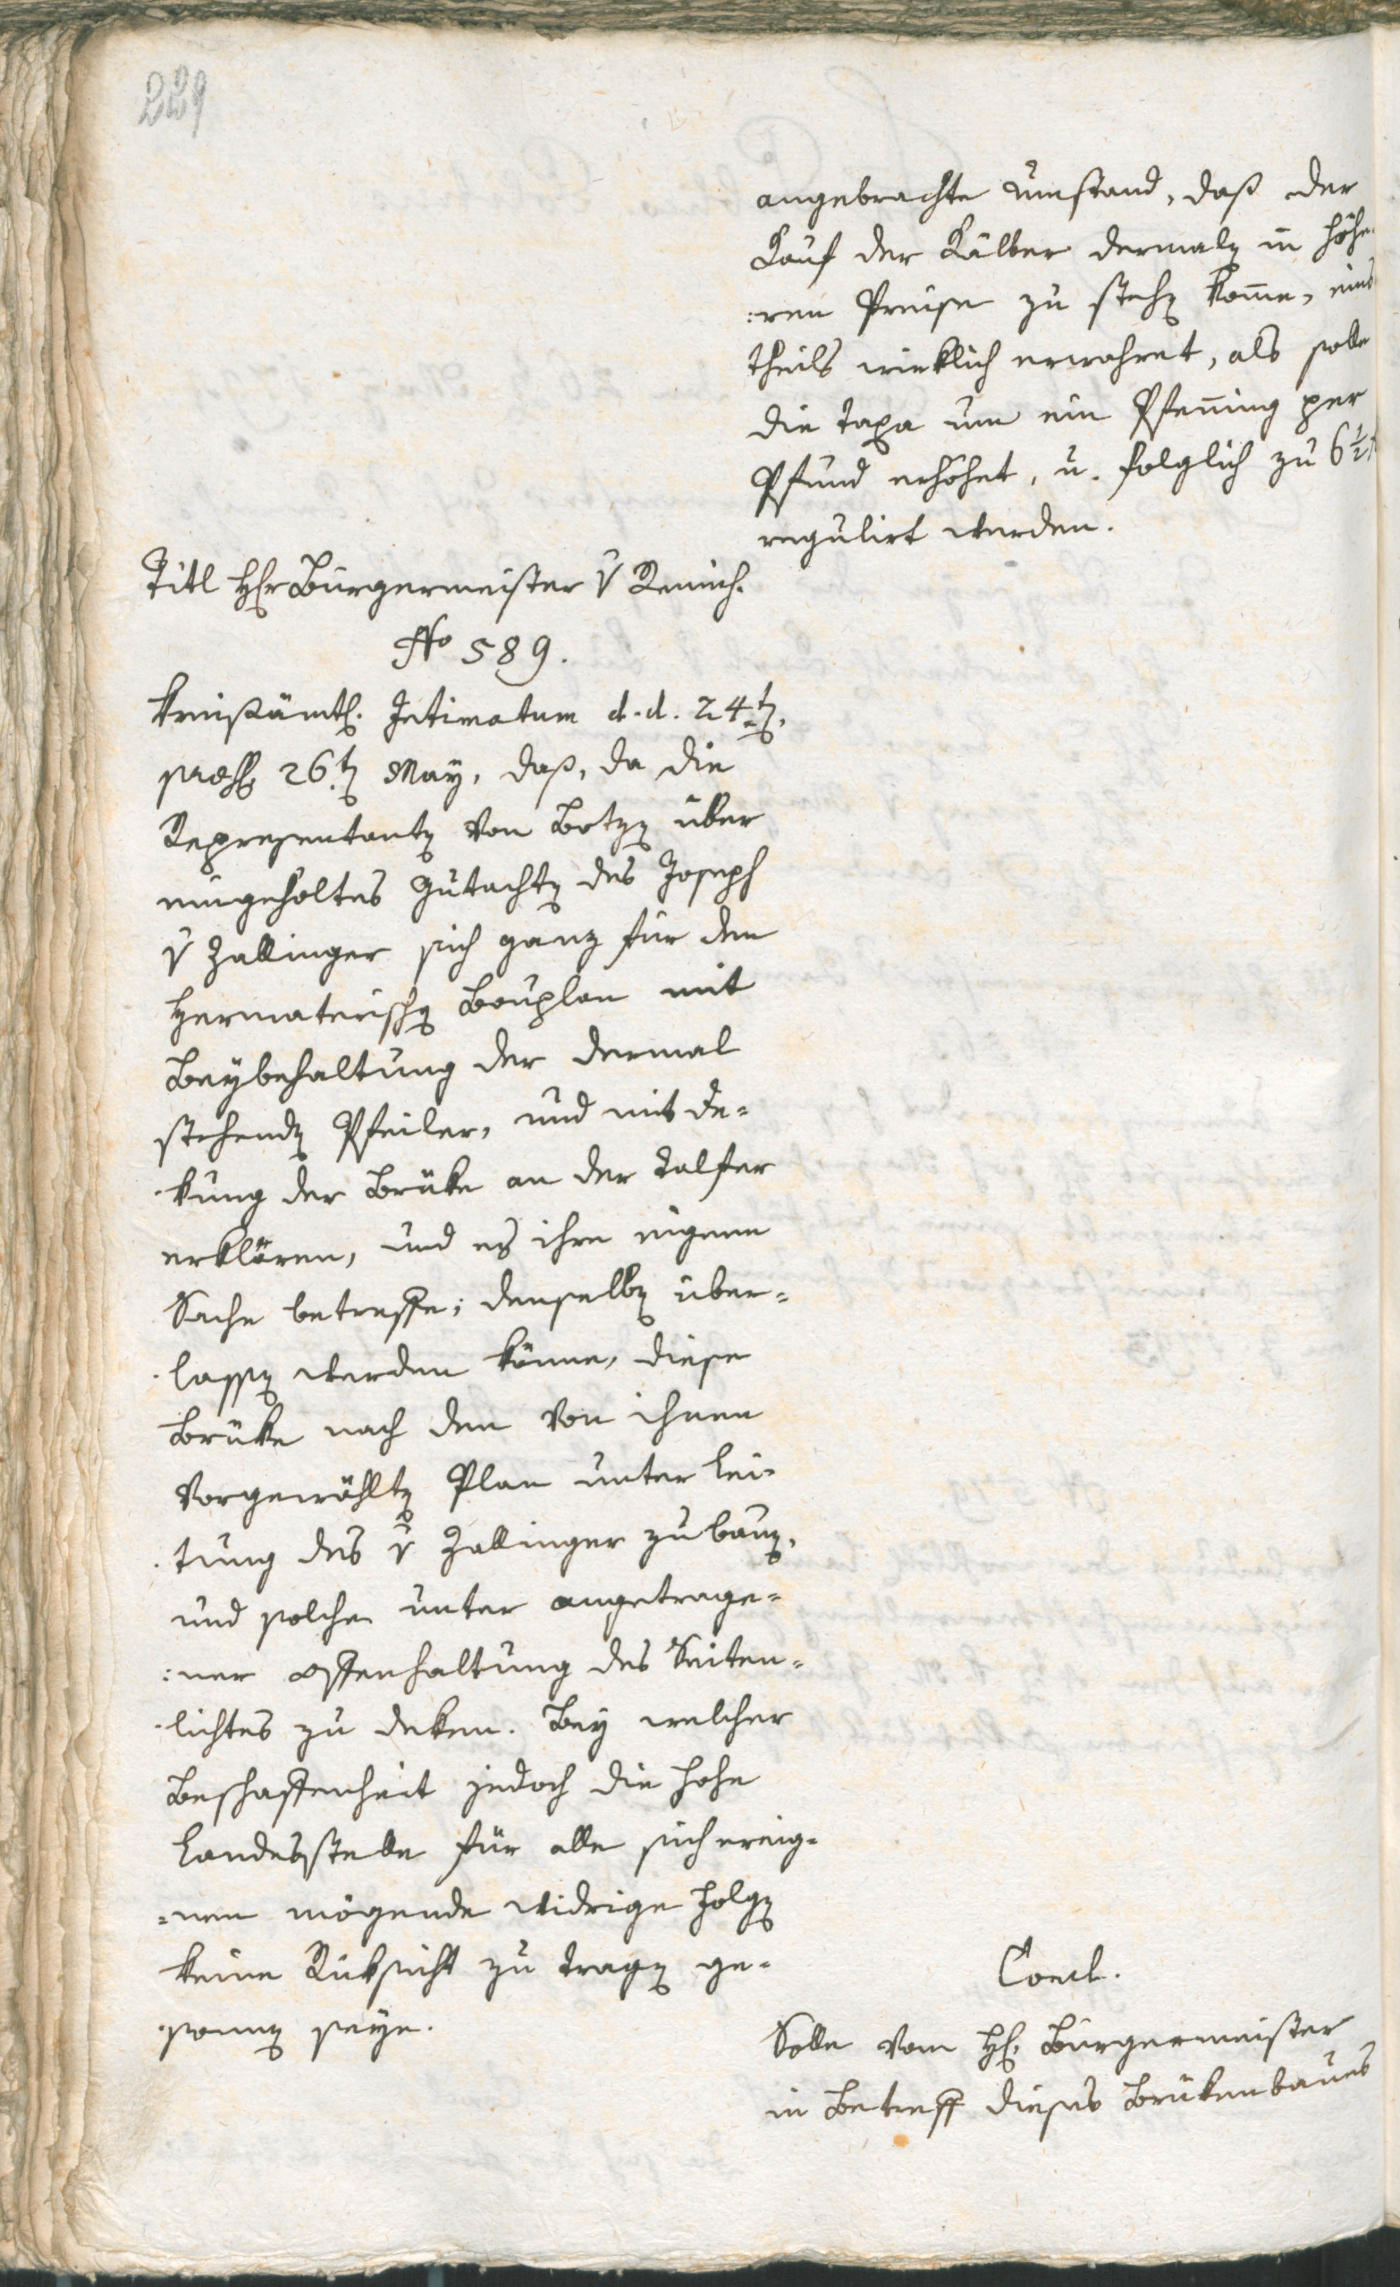 229
angebrachte Umstand, daß der
Kauf der Kälber dermalen in höhe
:ren Preise zu stehen kome, eines
theils wirklich erwahret, als solle
die Taxa um ein Pfening per
Pfund erhöhet, u. folglich zu 6 1/2
regulirt werden.
Titl Hr Bürgermeister v Remich.
No 589.
Kreisämtl. Intimatum d. d. 24ten,
praes. 26ten May, daß, da die
Representanten von Botzen über
eingeholtes Gutachten des Joseph
v Zallinger sich ganz für den
Hermaterischen Bauplan mit
Beybehaltung der dermal
stehenden Pfeiler, und mit De-
kung der Brüke an der Talfer
erklären, und es ihre eigene
Sache betreffe; denselben über-
lassen werden könne, diese
Brüke nach dem von ihnen
vorgewählten Plan unter Lei-
tung des v Zallinger zu bauen,
und solche unter angetrage-
:ner Offenhaltung des Seiten-
lichtes zu deken. Bey welcher
Beschaffenheit jedoch die hohe
Landesstelle für alle sich ereig-
=nen mögende widrige Folgen
keine Rüksicht zu tragen ge-
sonnen seye.
Concl.
Solle vom H. Bürgermeister
in Betreff dieses Brükenbaues